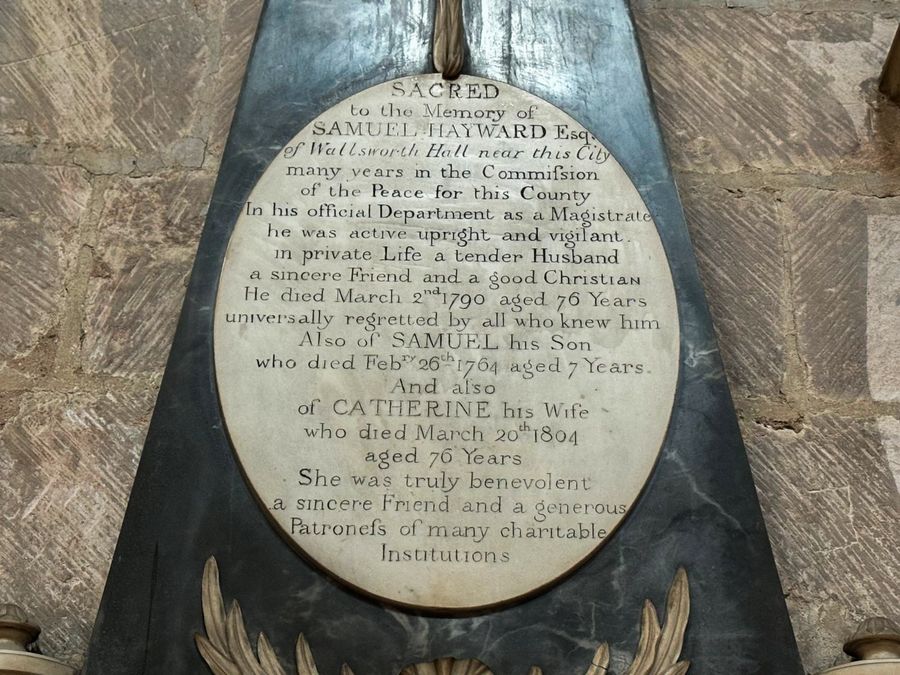 SACRED
to the Memory of
SAMUEL HAYWARD Esq.
of Wallsworth Hall near this City
many years in the Commiſsion
of the Peace for this County
In his official Department as a Magistrate
he was active upright and vigilant.
in private Life a tender Husband
a sincere Friend and a good Christian
He died March 2nd 1790 aged 76 Years
universally regretted by all who knew him
Also of SAMUEL his Son
who died Febry 26th 1764 aged 7 Years.
And also
of CATHERINE his Wife
who died March 20th 1804
aged 76 Years
She was truly benevolent
a sincere Friend and a generous
Patroneſs of many charitable
Institutions